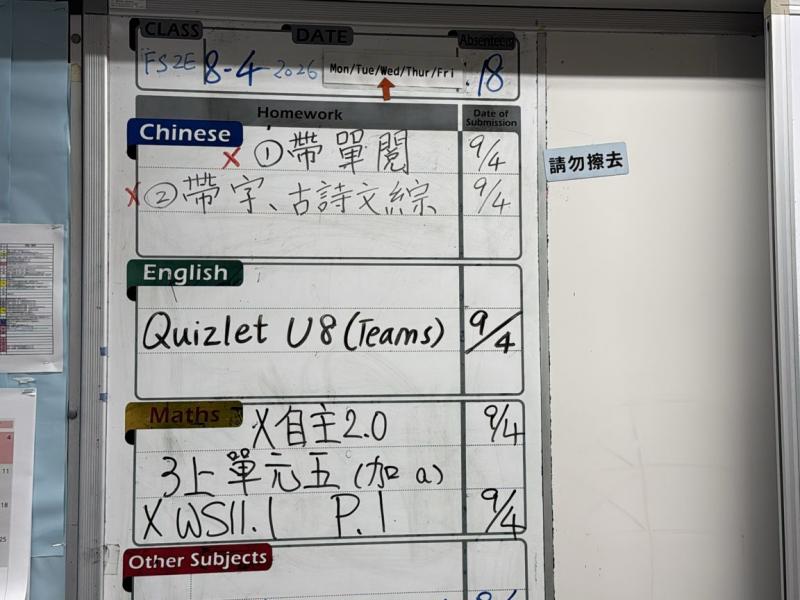 CLASS DATE Absentees
FS2E 8-4-2026 Mon/Tue/Wed/Thur/Fri : 18
Homework Date of Submission
Chinese
X ① 帶單閱 9/4
X ② 帶字、古詩文綜 9/4
請勿擦去
English
Quizlet U8 (Teams) 9/4
Maths
X 自主2.0 9/4
3上單元五 (加 a)
X WS11.1 P.1 9/4
Other Subjects